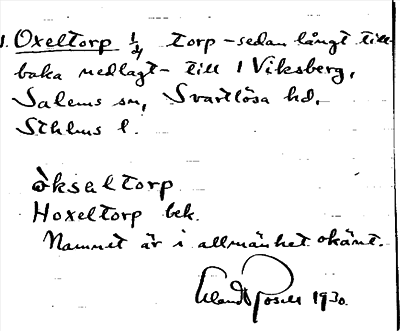 1. Oxeltorp 1/4 torp - sedan långt till-
baka nedlagt - till 1 Viksberg,
Salems sn, Svartlösa hd,
Sthlms l.
òkseltorp
Hoxeltorp bek.
Namnet är i allmänhet okänt.
Erland Rosell 1930.